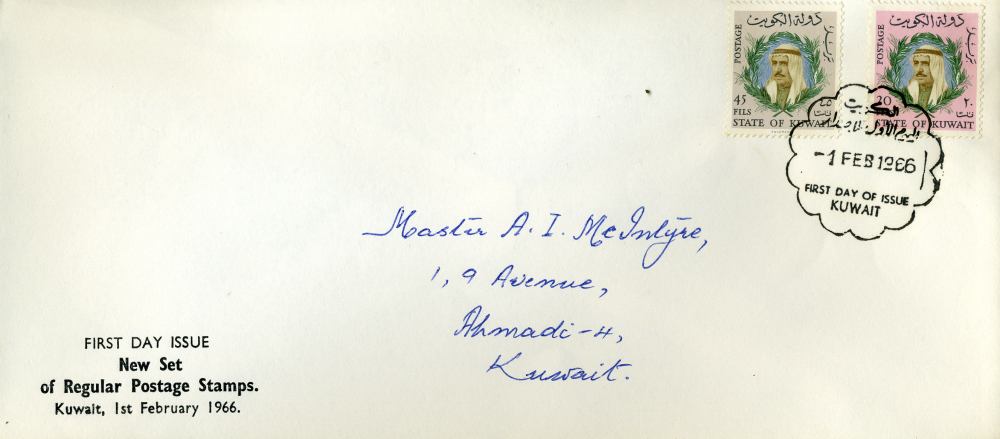 دولة الكويت
POSTAGE
بريد
45
FILS
٤٥
فلسا
STATE OF KUWAIT
دولة الكويت
POSTAGE
بريد
20
٢٠
فلسا
STATE OF KUWAIT
الكويت
اليوم الأول للإصدار
-1 FEB 1966
FIRST DAY OF ISSUE
KUWAIT
Master A. I. McIntyre,
1, 9 Avenue,
Ahmadi-4,
Kuwait.
FIRST DAY ISSUE
New Set
of Regular Postage Stamps.
Kuwait, 1st February 1966.